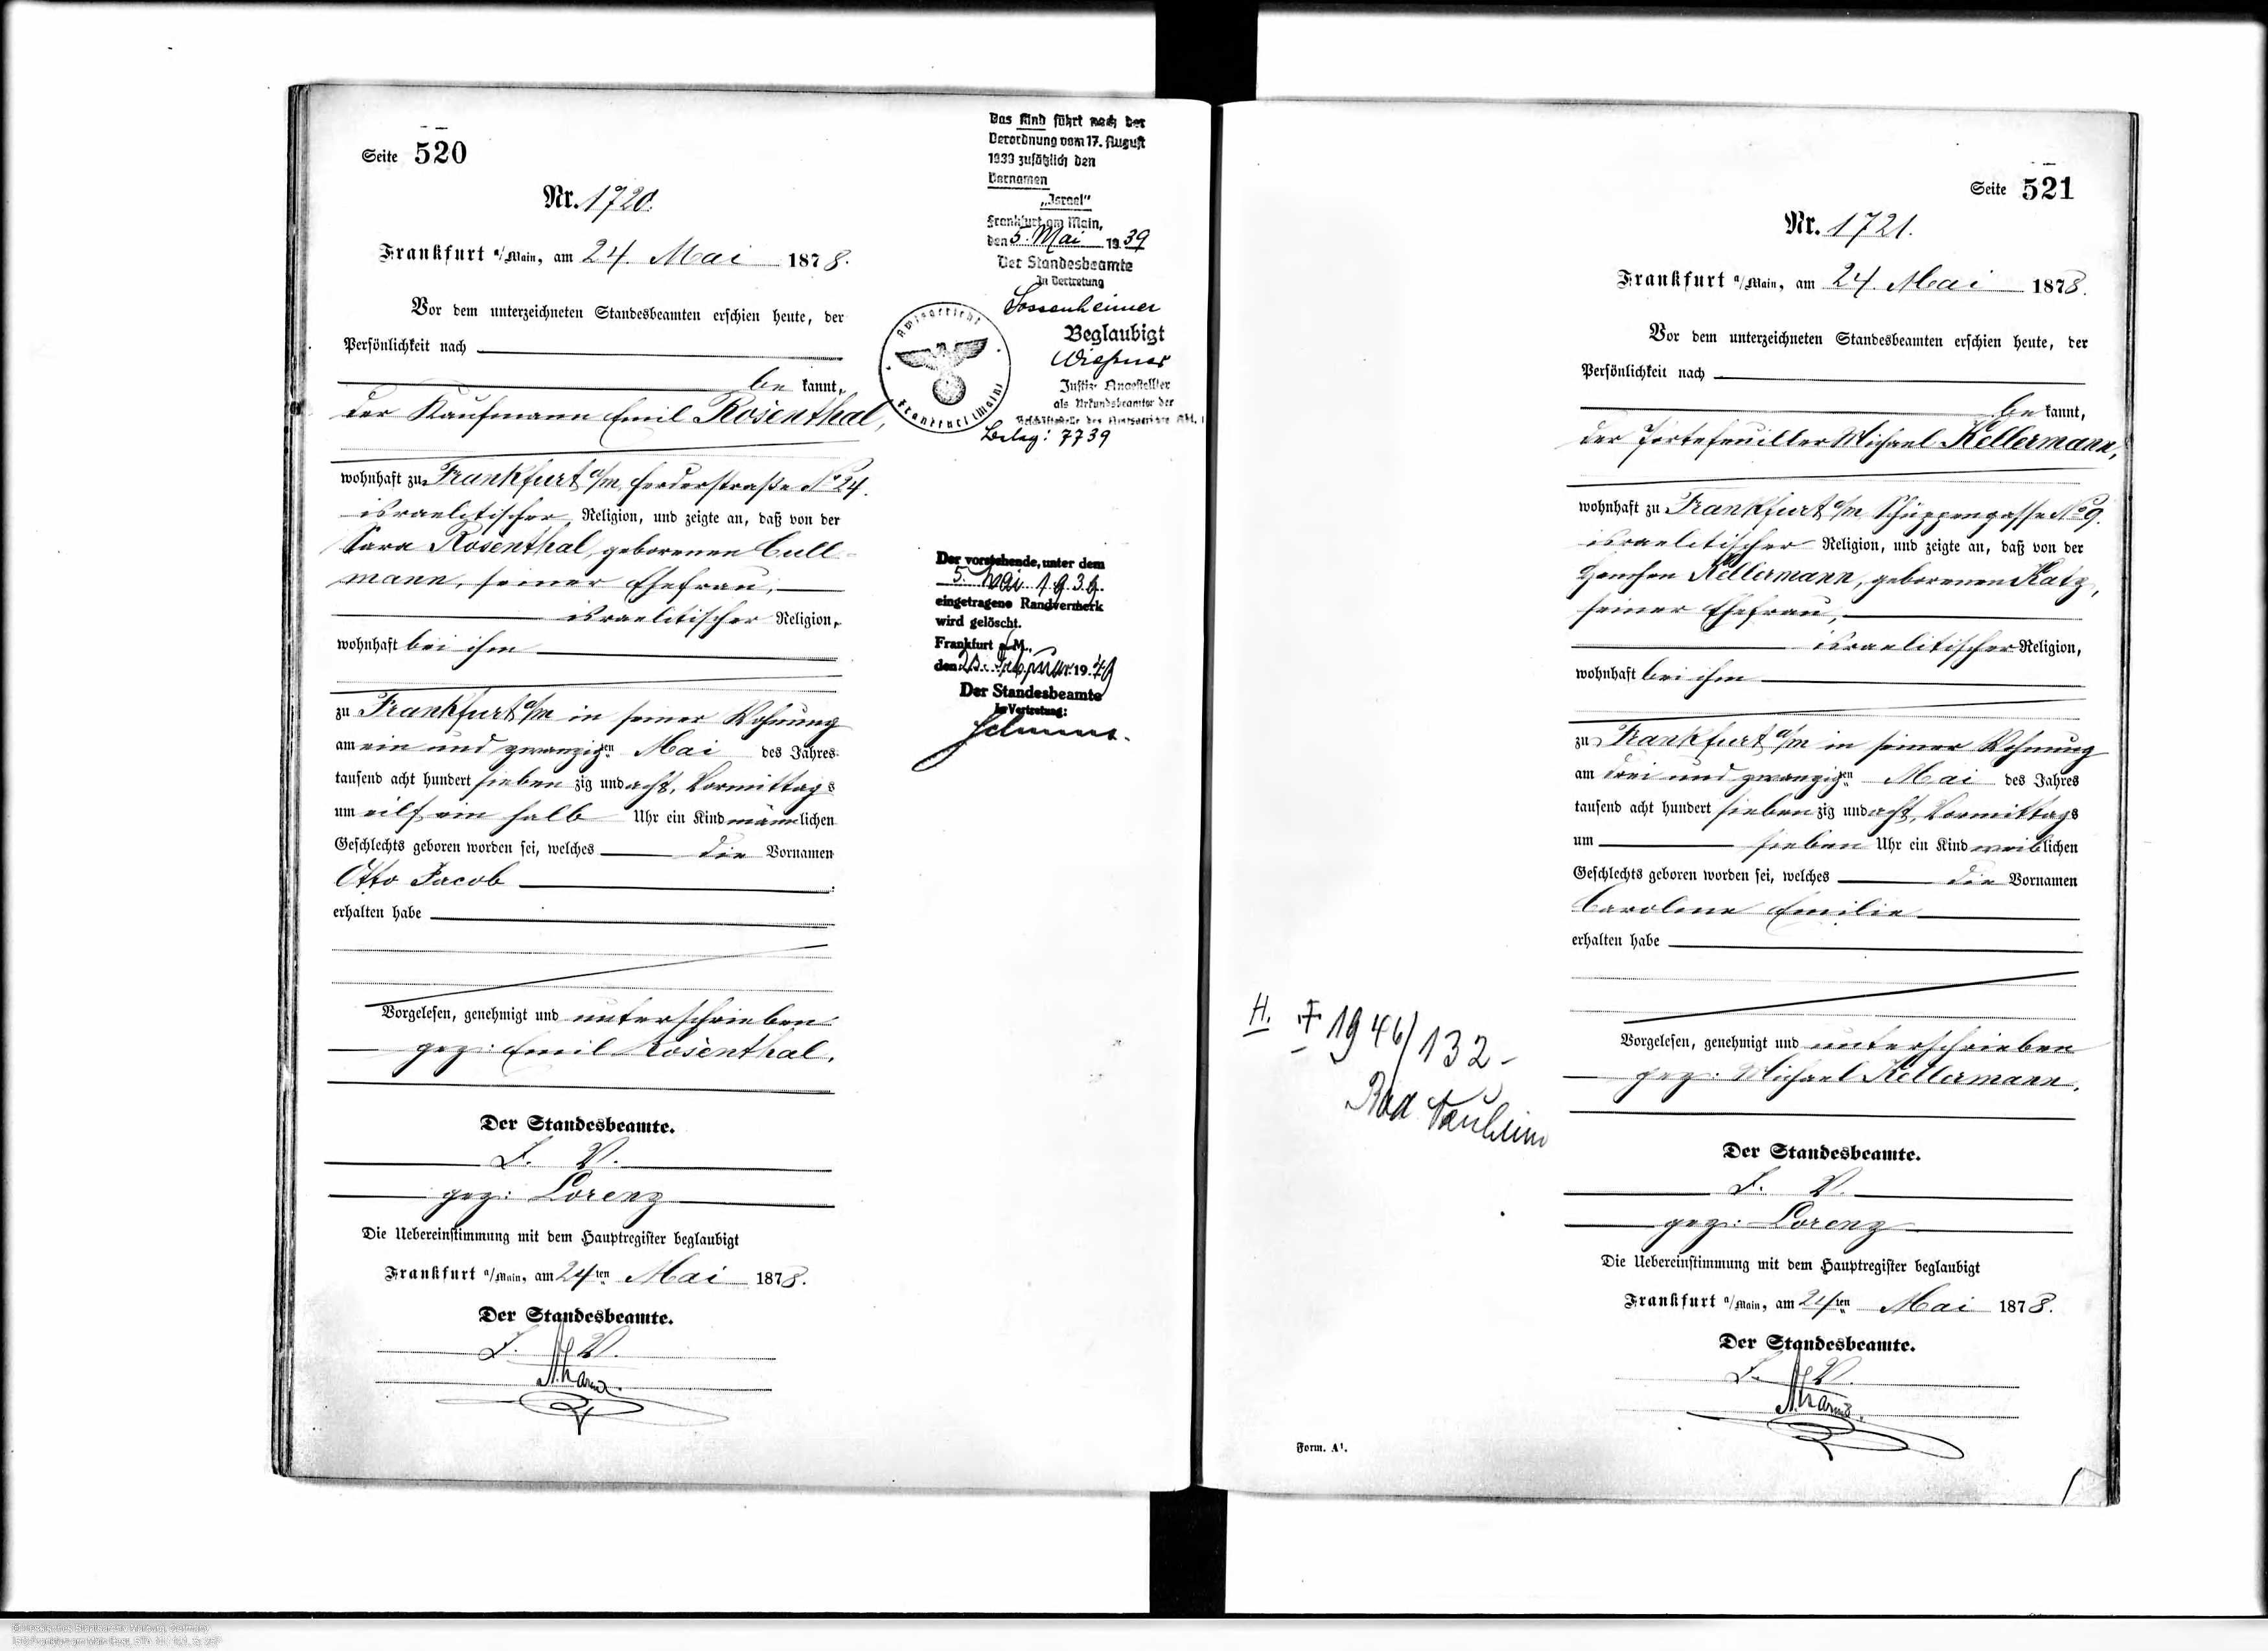 Seite 520
Nr. 1720.
Frankfurt a/Main, am 24. Mai 1878.
Vor dem unterzeichneten Standesbeamten erschien heute, der
Persönlichkeit nach
be kannt,
der Kaufmann Emil Rosenthal,
wohnhaft zu Frankfurt a/M, Herderstraße No 24.
israelitischer Religion, und zeigte an, daß von der
Sara Rosenthal, geborenen Cull-
mann, seiner Ehefrau,
israelitischer Religion,
wohnhaft bei ihm
zu Frankfurt a/M in seiner Wohnung
am ein und zwanzigsten Mai des Jahres
tausend acht hundert sieben zig und acht, Vormittags
um eilf ein halb Uhr ein Kind männlichen
Geschlechts geboren worden sei, welches die Vornamen
Otto Jacob
erhalten habe
Vorgelesen, genehmigt und unterschrieben
gez: Emil Rosenthal.
Der Standesbeamte.
J. V.
gez: Lorenz
Die Uebereinstimmung mit dem Hauptregister beglaubigt
Frankfurt a/Main, am 24ten Mai 1878.
Der Standesbeamte.
J. V.
Das Kind führt nach der
Verordnung vom 17. August
1939 zusätzlich den
Vornamen
„Israel"
Frankfurt am Main,
den 5. Mai 1939
Der Standesbeamte
In Vertretung
Sossenheimer
Beglaubigt
Justiz-Angestellter
als Urkundsbeamter der
Geschäftsstelle des Amtsgerichts Abt.
Amtsgericht
Frankfurt (Main)
Beleg: 7739
Der vorstehende, unter dem
5. Mai 1939.
eingetragene Randvermerk
wird gelöscht.
Frankfurt a. M.,
den 19.
Der Standesbeamte
In Vertretung:
Seite 521
Nr. 1721.
Frankfurt a/Main, am 24. Mai 1878.
Vor dem unterzeichneten Standesbeamten erschien heute, der
Persönlichkeit nach
be kannt,
der Portefeuiller Michael Kellermann,
wohnhaft zu Frankfurt a/M Schüppengasse No 9.
israelitischer Religion, und zeigte an, daß von der
Hanchen Kellermann, geborenen Katz,
seiner Ehefrau,
israelitischer Religion,
wohnhaft bei ihm
zu Frankfurt a/M in seiner Wohnung
am drei und zwanzigsten Mai des Jahres
tausend acht hundert sieben zig und acht, Vormittags
um sieben Uhr ein Kind weiblichen
Geschlechts geboren worden sei, welches die Vornamen
Caroline Emilie
erhalten habe
Vorgelesen, genehmigt und unterschrieben
gez: Michael Kellermann.
Der Standesbeamte.
J. V.
gez: Lorenz
Die Uebereinstimmung mit dem Hauptregister beglaubigt
Frankfurt a/Main, am 24ten Mai 1878.
Der Standesbeamte.
J. V.
H. † 1946/132-
Bad Nauheim
Form. A1.